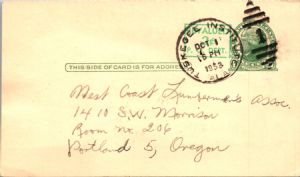 TUSKEGEE INSTITUTE
OCT 1
PM
1953
ALA.
1
THIS SIDE OF CARD IS FOR ADDRESS
West Coast Lumberman's Assoc.
1410 S.W. Morrison
Room no. 206
Portland 5, Oregon